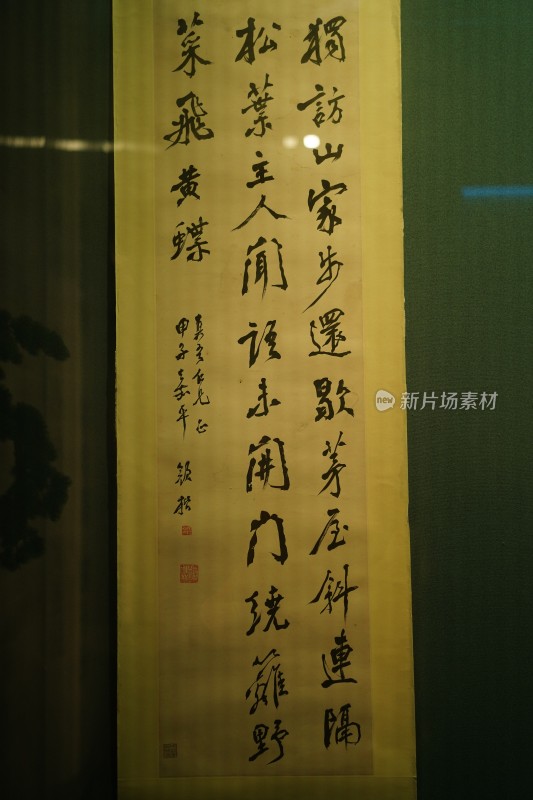 獨訪山家步還歇茅屋斜連隔
松葉主人聞語未開門繞籬野
菜飛黃蝶
仁兄正
甲子嘉平
new 新片场素材